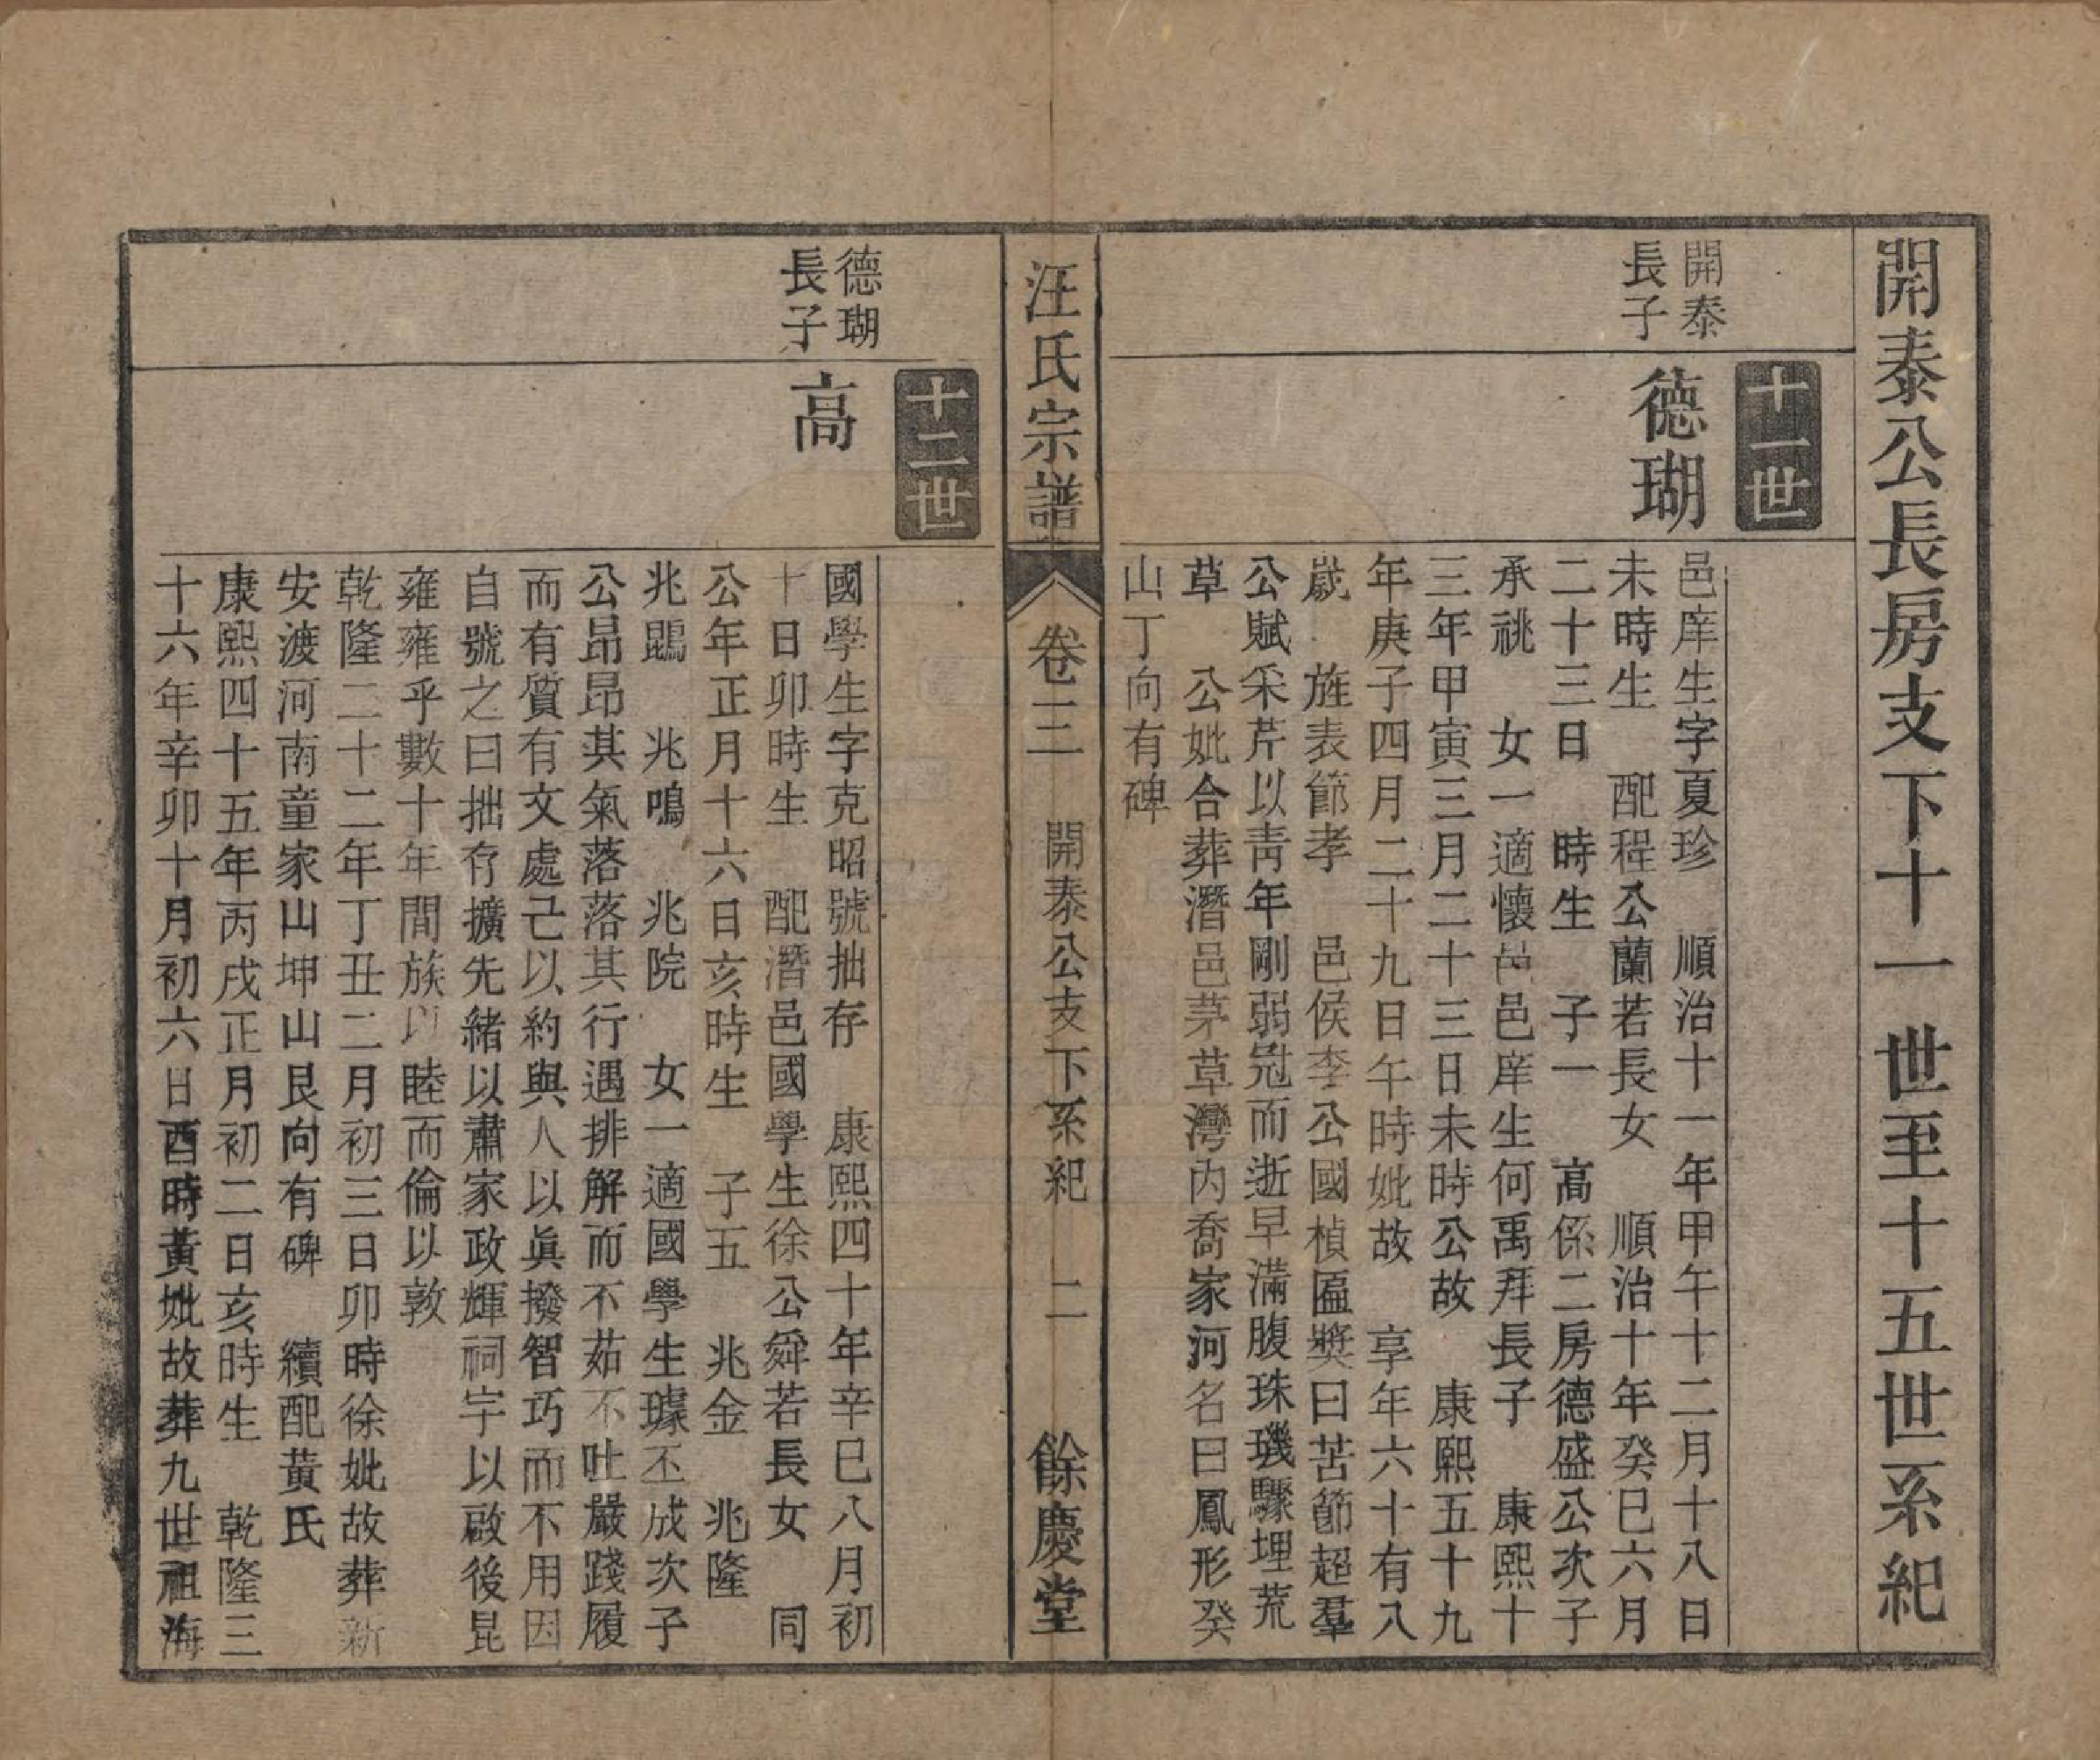 開泰公長房支下十一世至十五世系紀
十一世
開泰
長子
德瑚
邑庠生字夏珍　順治十一年甲午十二月十八日
未時生　配程公蘭若長女　順治十年癸巳六月
二十三日　時生　子一　高係二房德盛公次子
承祧　女一適懷邑邑庠生何禹拜長子　康熙十
三年甲寅三月二十三日未時公故　康熙五十九
年庚子四月二十九日午時妣故　享年六十有八
歲　旌表節孝　邑侯李公國楨匾獎曰苦節超羣
公賦采芹以青年剛弱冠而逝早滿腹珠璣驟埋荒
草　公妣合葬潛邑茅草灣內喬家河名曰鳳形癸
山丁向有碑
汪氏宗譜
卷三　開泰公支下系紀　二　餘慶堂
十二世
德瑚
長子
高
國學生字克昭號拙存　康熙四十年辛巳八月初
十日卯時生　配潛邑國學生徐公舜若長女　同
公年正月十六日亥時生　子五　兆金　兆隆
兆鵾　兆鳴　兆院　女一適國學生璩丕成次子
公昂昂其氣落落其行遇排解而不茹不吐嚴踐履
而有質有文處己以約與人以眞撥智巧而不用因
自號之曰拙存擴先緒以肅家政輝祠宇以啟後昆
雍雍乎數十年間族以睦而倫以敦
乾隆二十二年丁丑二月初三日卯時徐妣故葬新
安渡河南童家山坤山艮向有碑　續配黃氏
康熙四十五年丙戌正月初二日亥時生　乾隆三
十六年辛卯十月初六日酉時黃妣故葬九世祖海